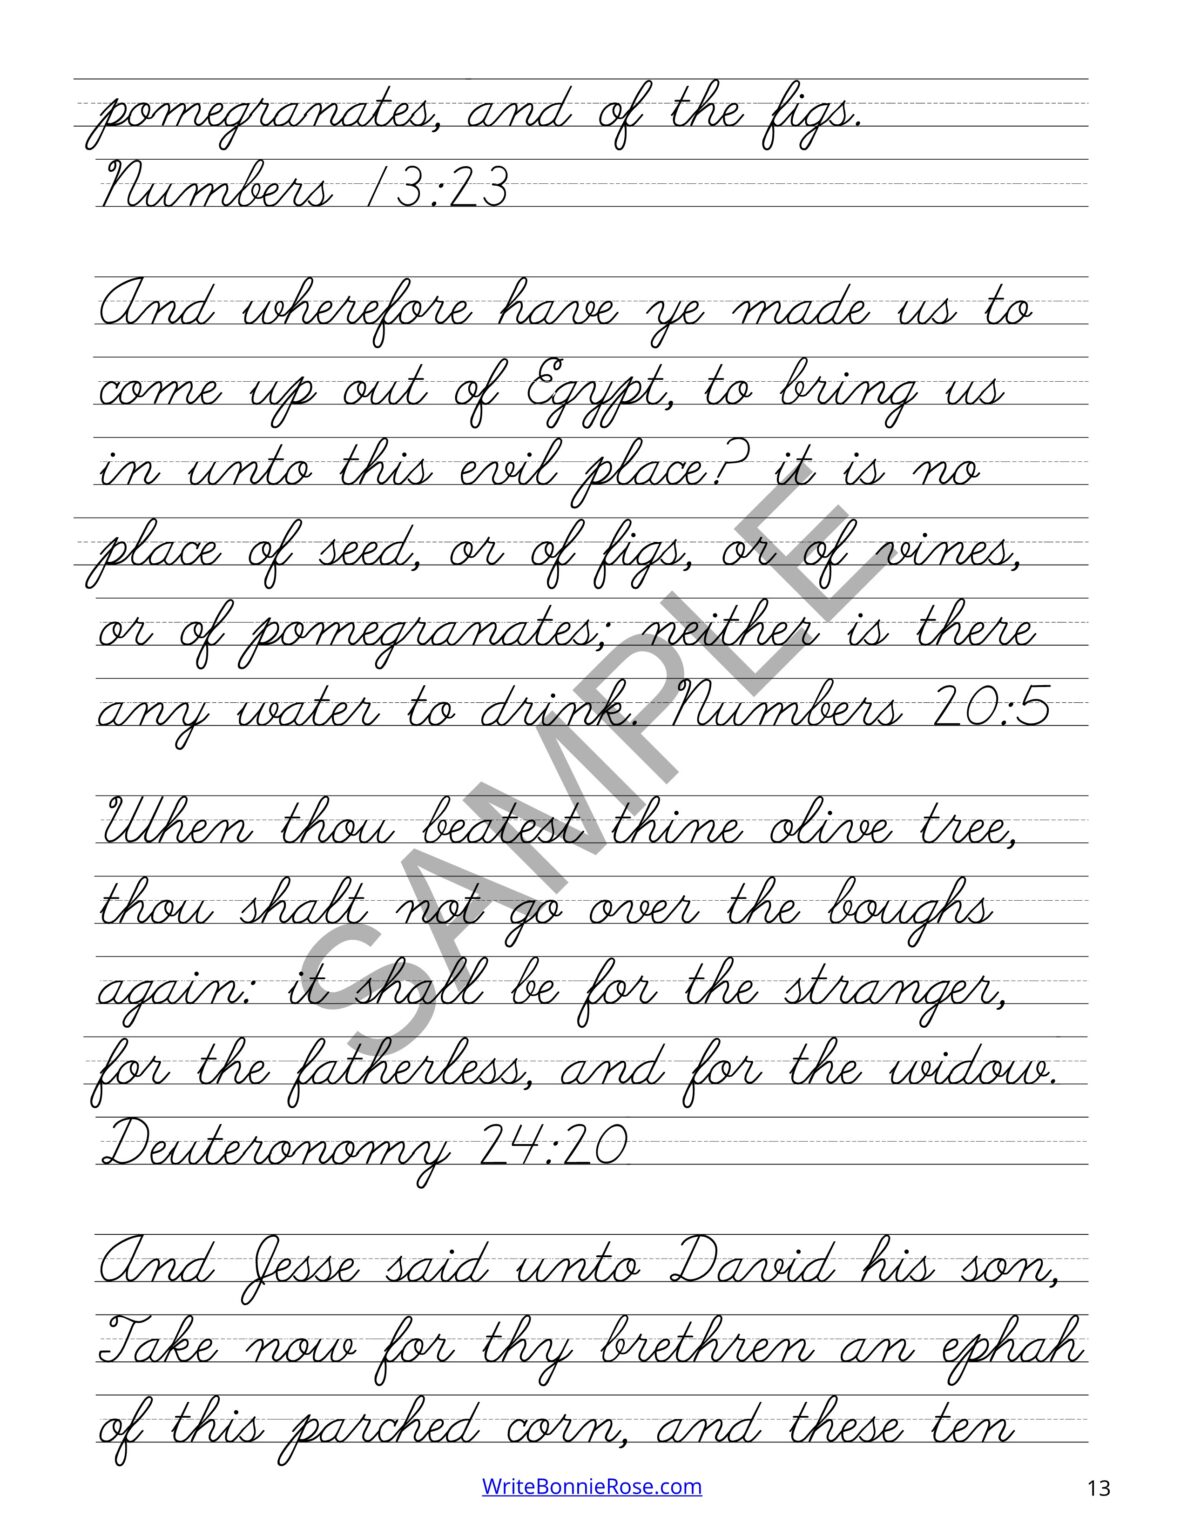 pomegranates, and of the figs.
Numbers 13:23
And wherefore have ye made us to
come up out of Egypt, to bring us
in unto this evil place? it is no
place of seed, or of figs, or of vines,
or of pomegranates; neither is there
any water to drink. Numbers 20:5
When thou beatest thine olive tree,
thou shalt not go over the boughs
again: it shall be for the stranger,
for the fatherless, and for the widow.
Deuteronomy 24:20
And Jesse said unto David his son,
Take now for thy brethren an ephah
of this parched corn, and these ten
SAMPLE
WriteBonnieRose.com
13